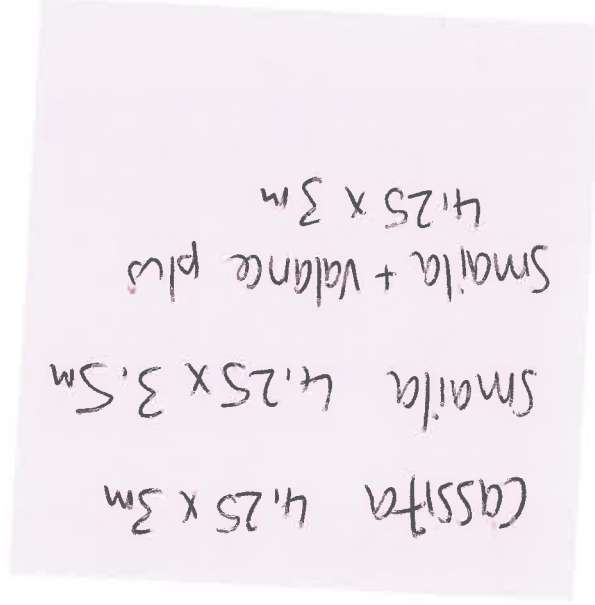 Cassita 4,25 x 3m
Smaila 4,25 x 3,5m
Smaila + Valance plus
4,25 x 3m